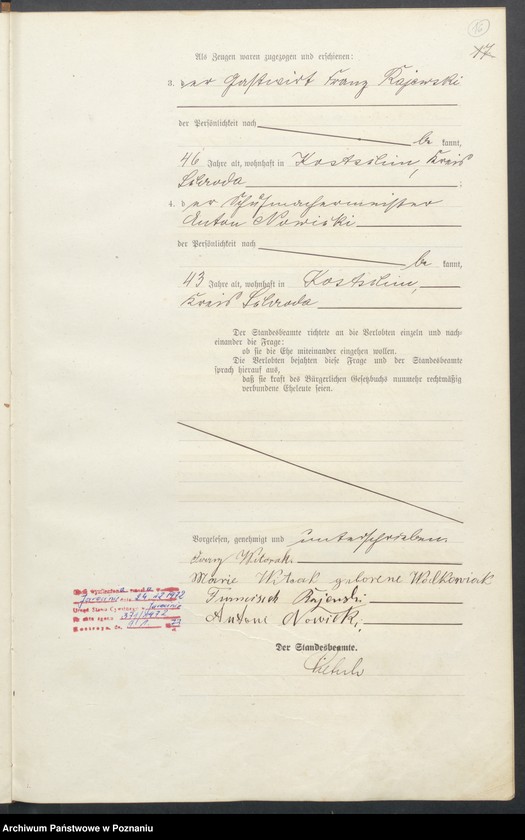 16
17
Als Zeugen waren zugezogen und erschienen:
3. der Gastwirt Franz Rajewski
der Persönlichkeit nach
be kannt,
46 Jahre alt, wohnhaft in Kostschin, Kreis
Schroda ;
4. der Schuhmachermeister
Anton Nowicki
der Persönlichkeit nach
be kannt,
43 Jahre alt, wohnhaft in Kostschin,
Kreis Schroda
Der Standesbeamte richtete an die Verlobten einzeln und nach-
einander die Frage:
ob sie die Ehe miteinander eingehen wollen.
Die Verlobten bejahten diese Frage und der Standesbeamte
sprach hierauf aus,
daß sie kraft des Bürgerlichen Gesetzbuchs nunmehr rechtmäßig
verbundene Eheleute seien.
Vorgelesen, genehmigt und unterschrieben.
Marie geborene
Rajewski
Nowicki,
Der Standesbeamte.
Archiwum Państwowe w Poznaniu